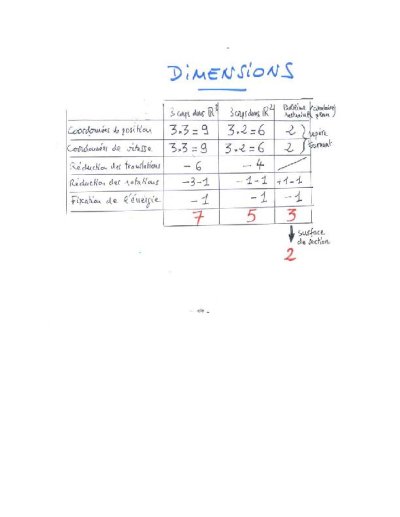 DIMENSIONS
3 corps dans ℝ³ 3 corps dans ℝ² Problème restreint (circulaire plan)
Coordonnées de position 3.3=9 3.2=6 2 repère
Coordonnées de vitesse 3.3=9 3.2=6 2 tournant
Réduction des translations -6 -4
Réduction des rotations -3-1 -1-1 +1-1
Fixation de l'énergie -1 -1 -1
7 5 3
surface
de section
2